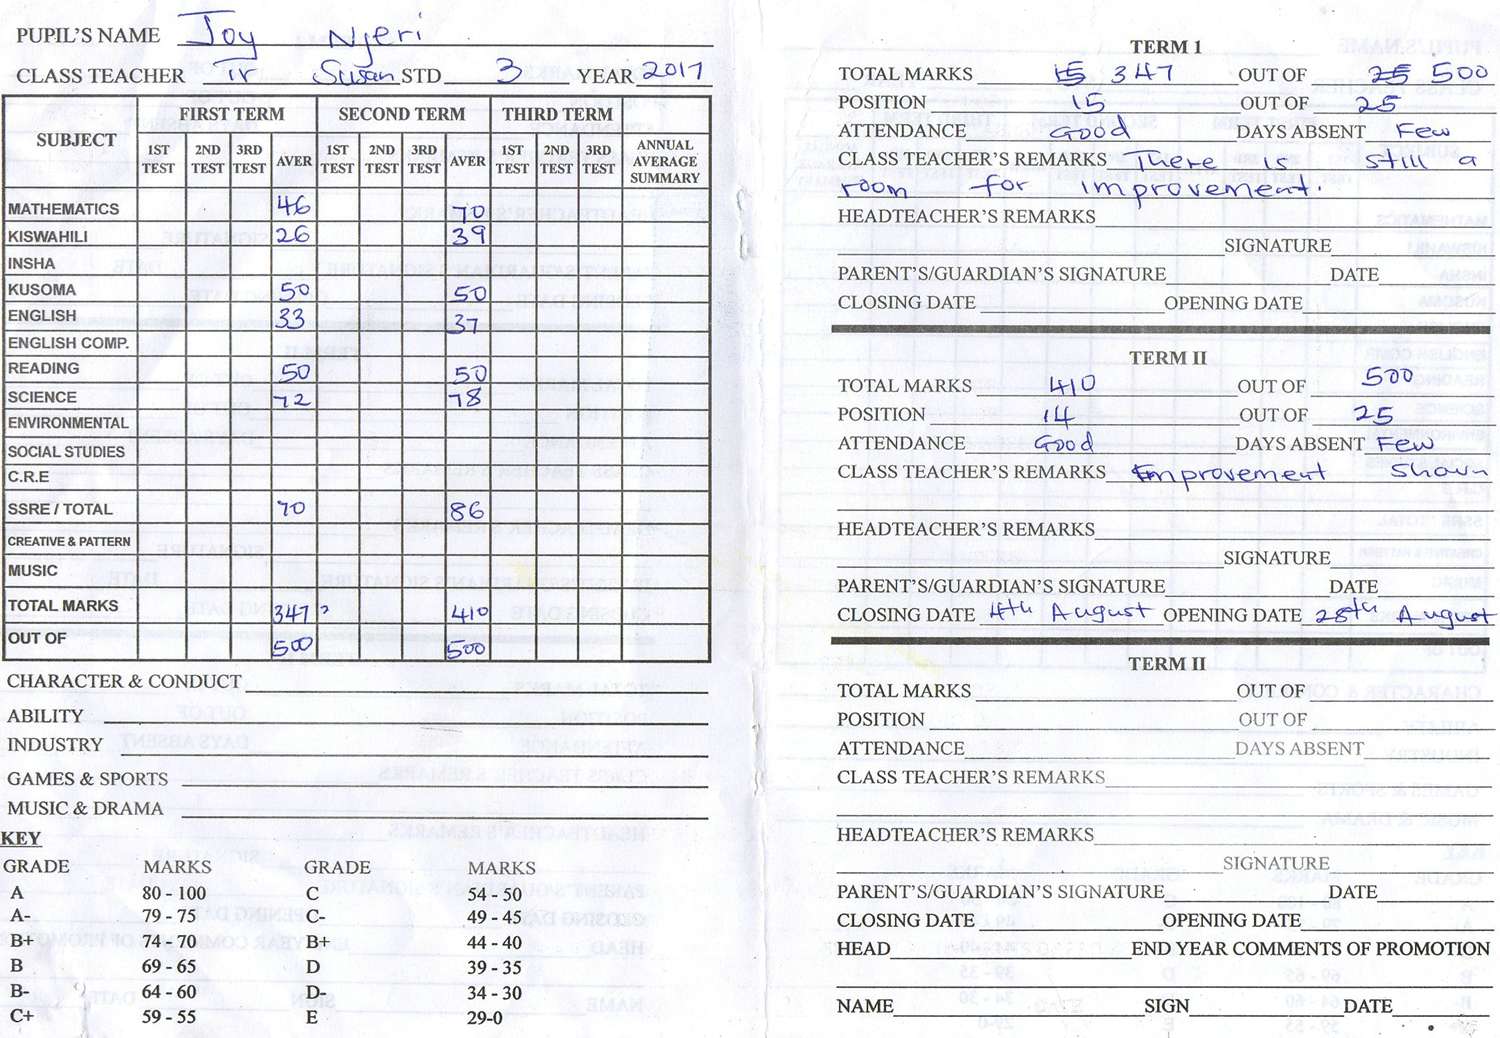 PUPIL'S NAME Joy Njeri
CLASS TEACHER Tr Susan STD 3 YEAR 2017
SUBJECT FIRST TERM SECOND TERM THIRD TERM
1ST TEST 2ND TEST 3RD TEST AVER 1ST TEST 2ND TEST 3RD TEST AVER 1ST TEST 2ND TEST 3RD TEST ANNUAL AVERAGE SUMMARY
MATHEMATICS 46 70
KISWAHILI 26 39
INSHA
KUSOMA 50 50
ENGLISH 33 37
ENGLISH COMP.
READING 50 50
SCIENCE 72 78
ENVIRONMENTAL
SOCIAL STUDIES
C.R.E
SSRE / TOTAL 70 86
CREATIVE & PATTERN
MUSIC
TOTAL MARKS 347 410
OUT OF 500 500
CHARACTER & CONDUCT
ABILITY
INDUSTRY
GAMES & SPORTS
MUSIC & DRAMA
KEY
GRADE MARKS GRADE MARKS
A 80 - 100 C 54 - 50
A- 79 - 75 C- 49 - 45
B+ 74 - 70 B+ 44 - 40
B 69 - 65 D 39 - 35
B- 64 - 60 D- 34 - 30
C+ 59 - 55 E 29-0
TERM 1
TOTAL MARKS 15 347 OUT OF 25 500
POSITION 15 OUT OF 25
ATTENDANCE Good DAYS ABSENT Few
CLASS TEACHER'S REMARKS There is still a
room for improvement.
HEADTEACHER'S REMARKS
SIGNATURE
PARENT'S/GUARDIAN'S SIGNATURE DATE
CLOSING DATE OPENING DATE
TERM II
TOTAL MARKS 410 OUT OF 500
POSITION 14 OUT OF 25
ATTENDANCE Good DAYS ABSENT Few
CLASS TEACHER'S REMARKS Improvement Shown
HEADTEACHER'S REMARKS
SIGNATURE
PARENT'S/GUARDIAN'S SIGNATURE DATE
CLOSING DATE 4th August OPENING DATE 28th August
TERM II
TOTAL MARKS OUT OF
POSITION OUT OF
ATTENDANCE DAYS ABSENT
CLASS TEACHER'S REMARKS
HEADTEACHER'S REMARKS
SIGNATURE
PARENT'S/GUARDIAN'S SIGNATURE DATE
CLOSING DATE OPENING DATE
HEAD END YEAR COMMENTS OF PROMOTION
NAME SIGN DATE